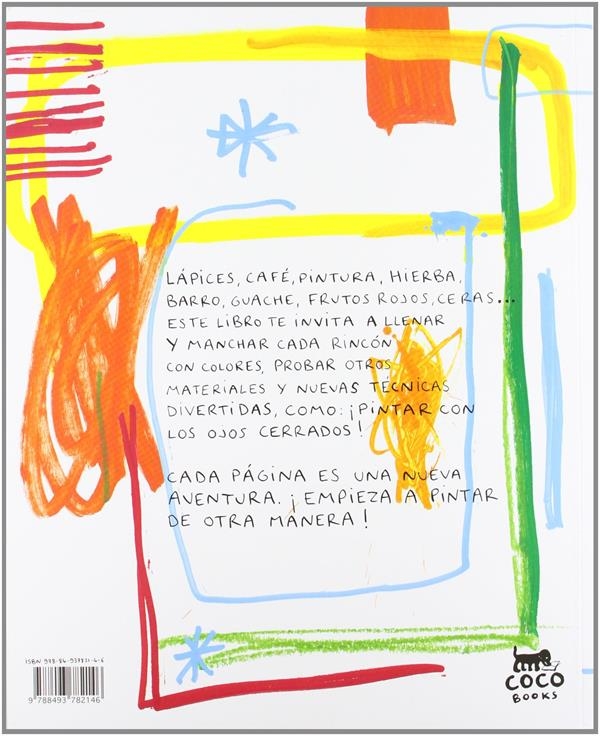 LÁPICES, CAFÉ, PINTURA, HIERBA,
BARRO, GUACHE, FRUTOS ROJOS, CERAS...
ESTE LIBRO TE INVITA A LLENAR
Y MANCHAR CADA RINCÓN
CON COLORES, PROBAR OTROS
MATERIALES Y NUEVAS TÉCNICAS
DIVERTIDAS, COMO: ¡PINTAR CON
LOS OJOS CERRADOS!
CADA PÁGINA ES UNA NUEVA
AVENTURA. ¡EMPIEZA A PINTAR
DE OTRA MANERA!
ISBN 978-84-937821-4-6
9 788493 782146
COCO
BOOKS